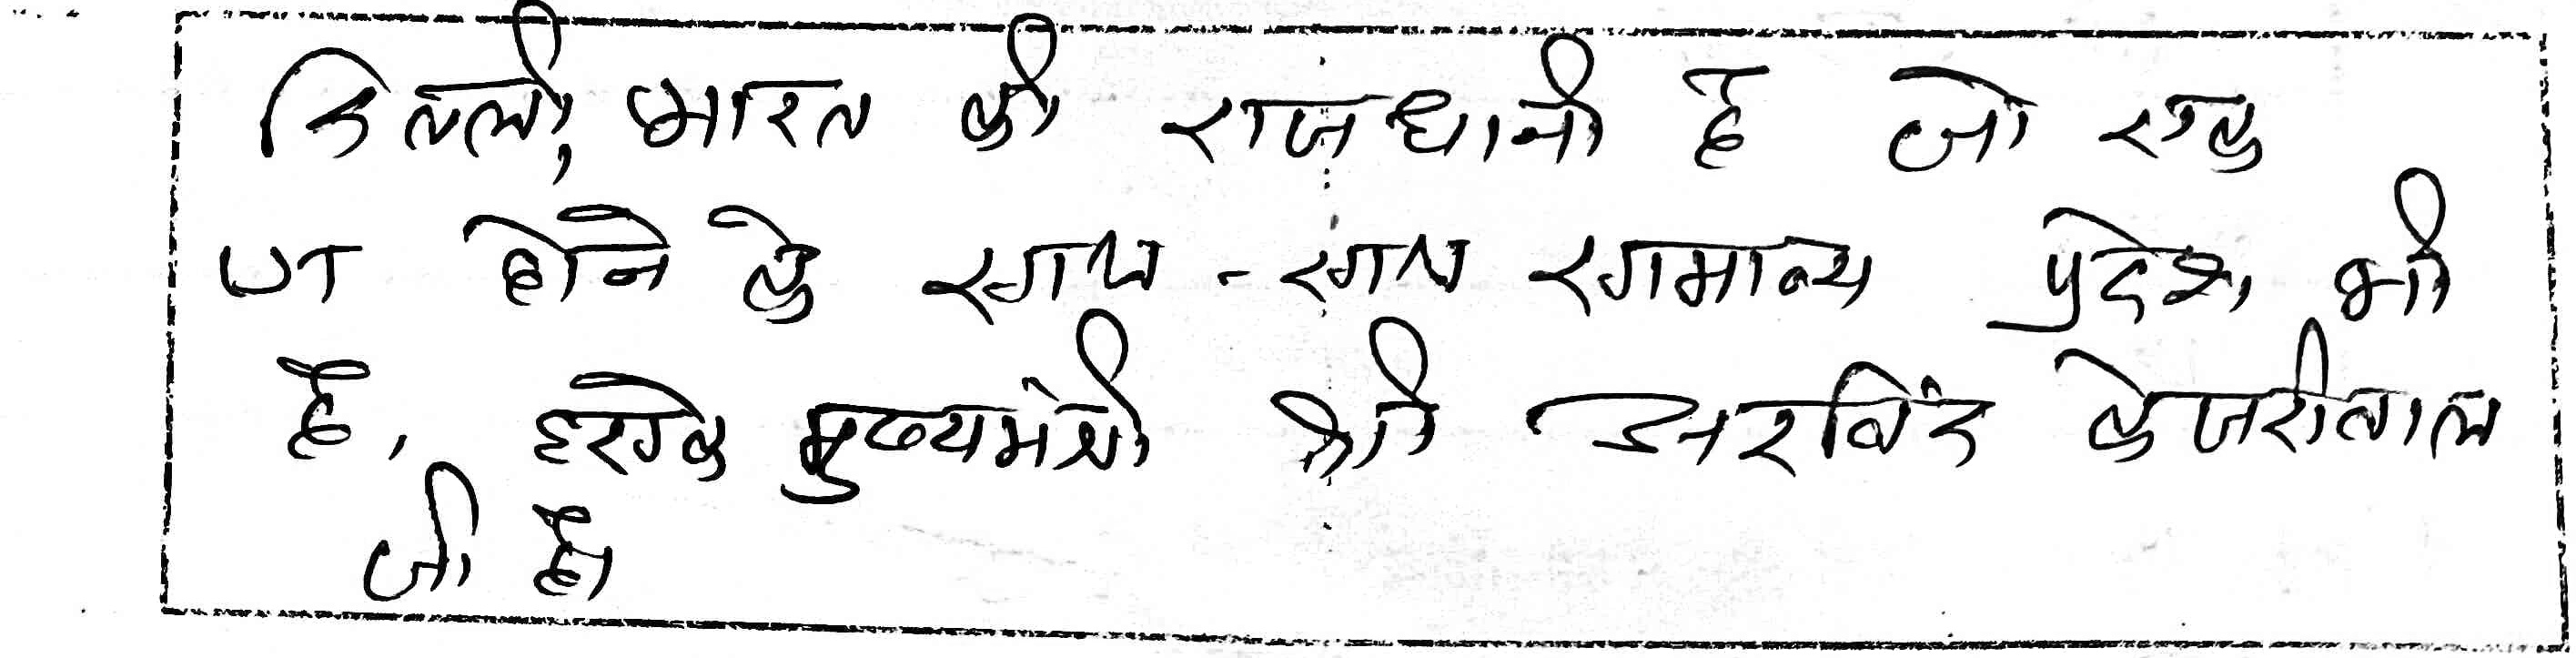 दिल्ली, भारत की राजधानी है जो एक
होने के साथ - साथ सामान्य प्रदेश भी
है, इसके मुख्यमंत्री श्री अरविंद केजरीवाल
जी है।